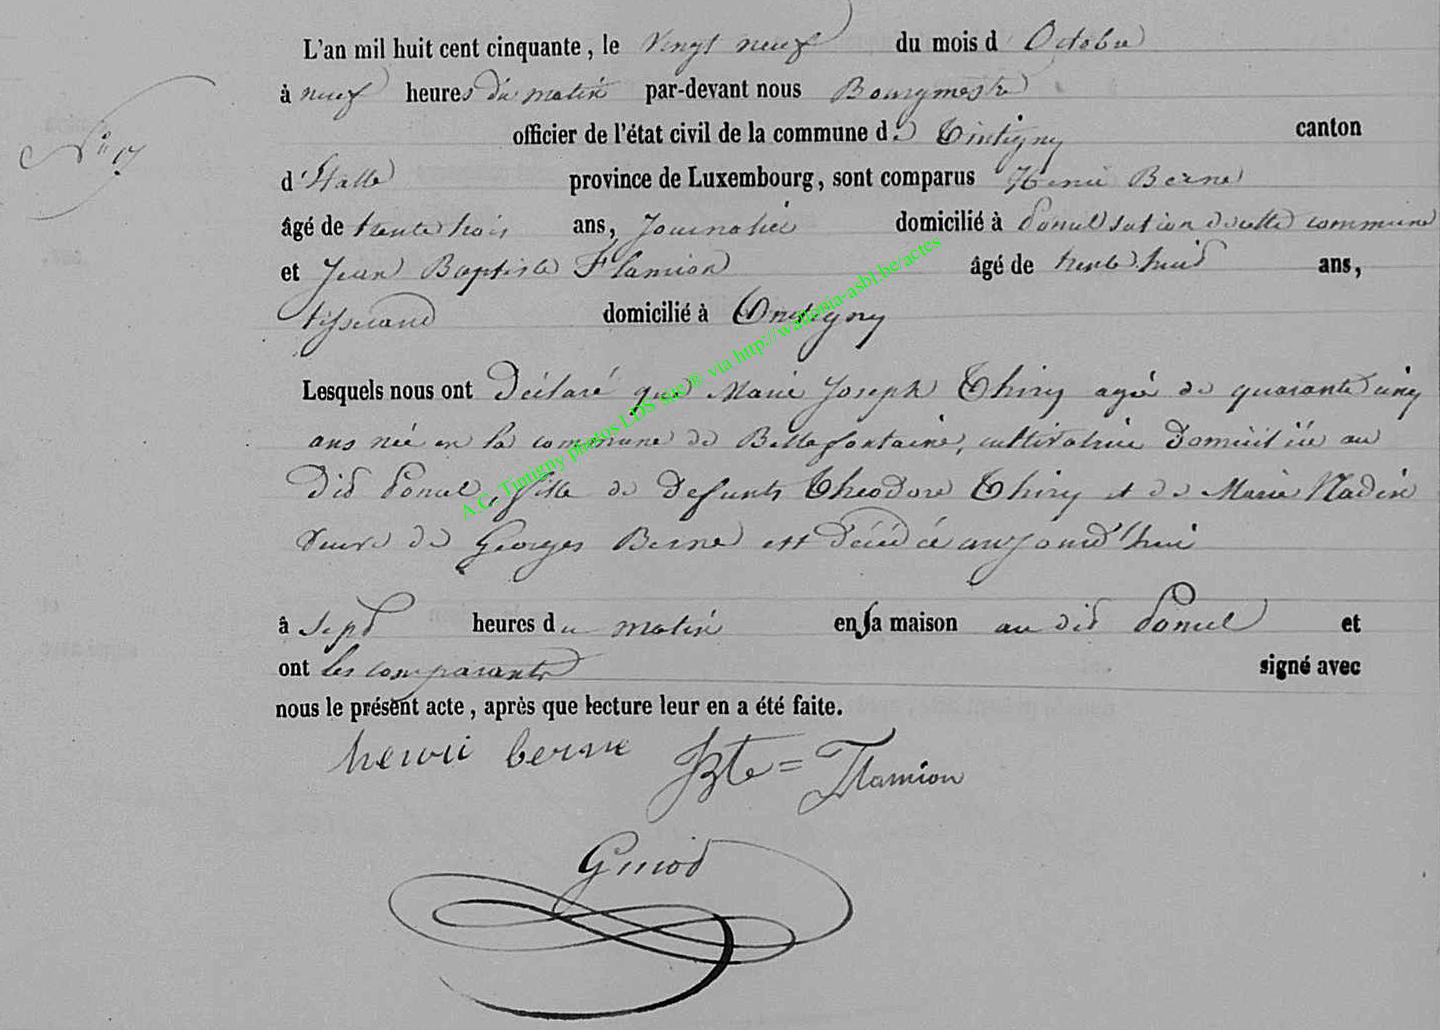 L'an mil huit cent cinquante, le Vingt neuf du mois d Octobre
à neuf heures du matin par-devant nous Bourgmestre
N° 17
officier de l'état civil de la commune de Tintigny canton
d'Etalle province de Luxembourg, sont comparus Henri Berne
âgé de trente trois ans, Journalier domicilié à Poncel section de cette commune
et Jean Baptiste Flamion âgé de trente huit ans,
tisserand domicilié à Tintigny
Lesquels nous ont Déclaré que Marie Joseph Thiry agée de quarante cinq
ans née en la commune de Bellefontaine, cultivatrice Domiciliée au
Did Poncel, fille de defunts Théodore Thiry et de Marie Nadin
veuve de Georges Berne est décédée aujourd'hui
à Sept heures du matin en sa maison au did Poncel et
ont les comparants signé avec
nous le présent acte, après que lecture leur en a été faite.
henri berne JBte= Flamion
A.C. Tintigny photos LDS site® via http://wallonia-asbl.be/actes